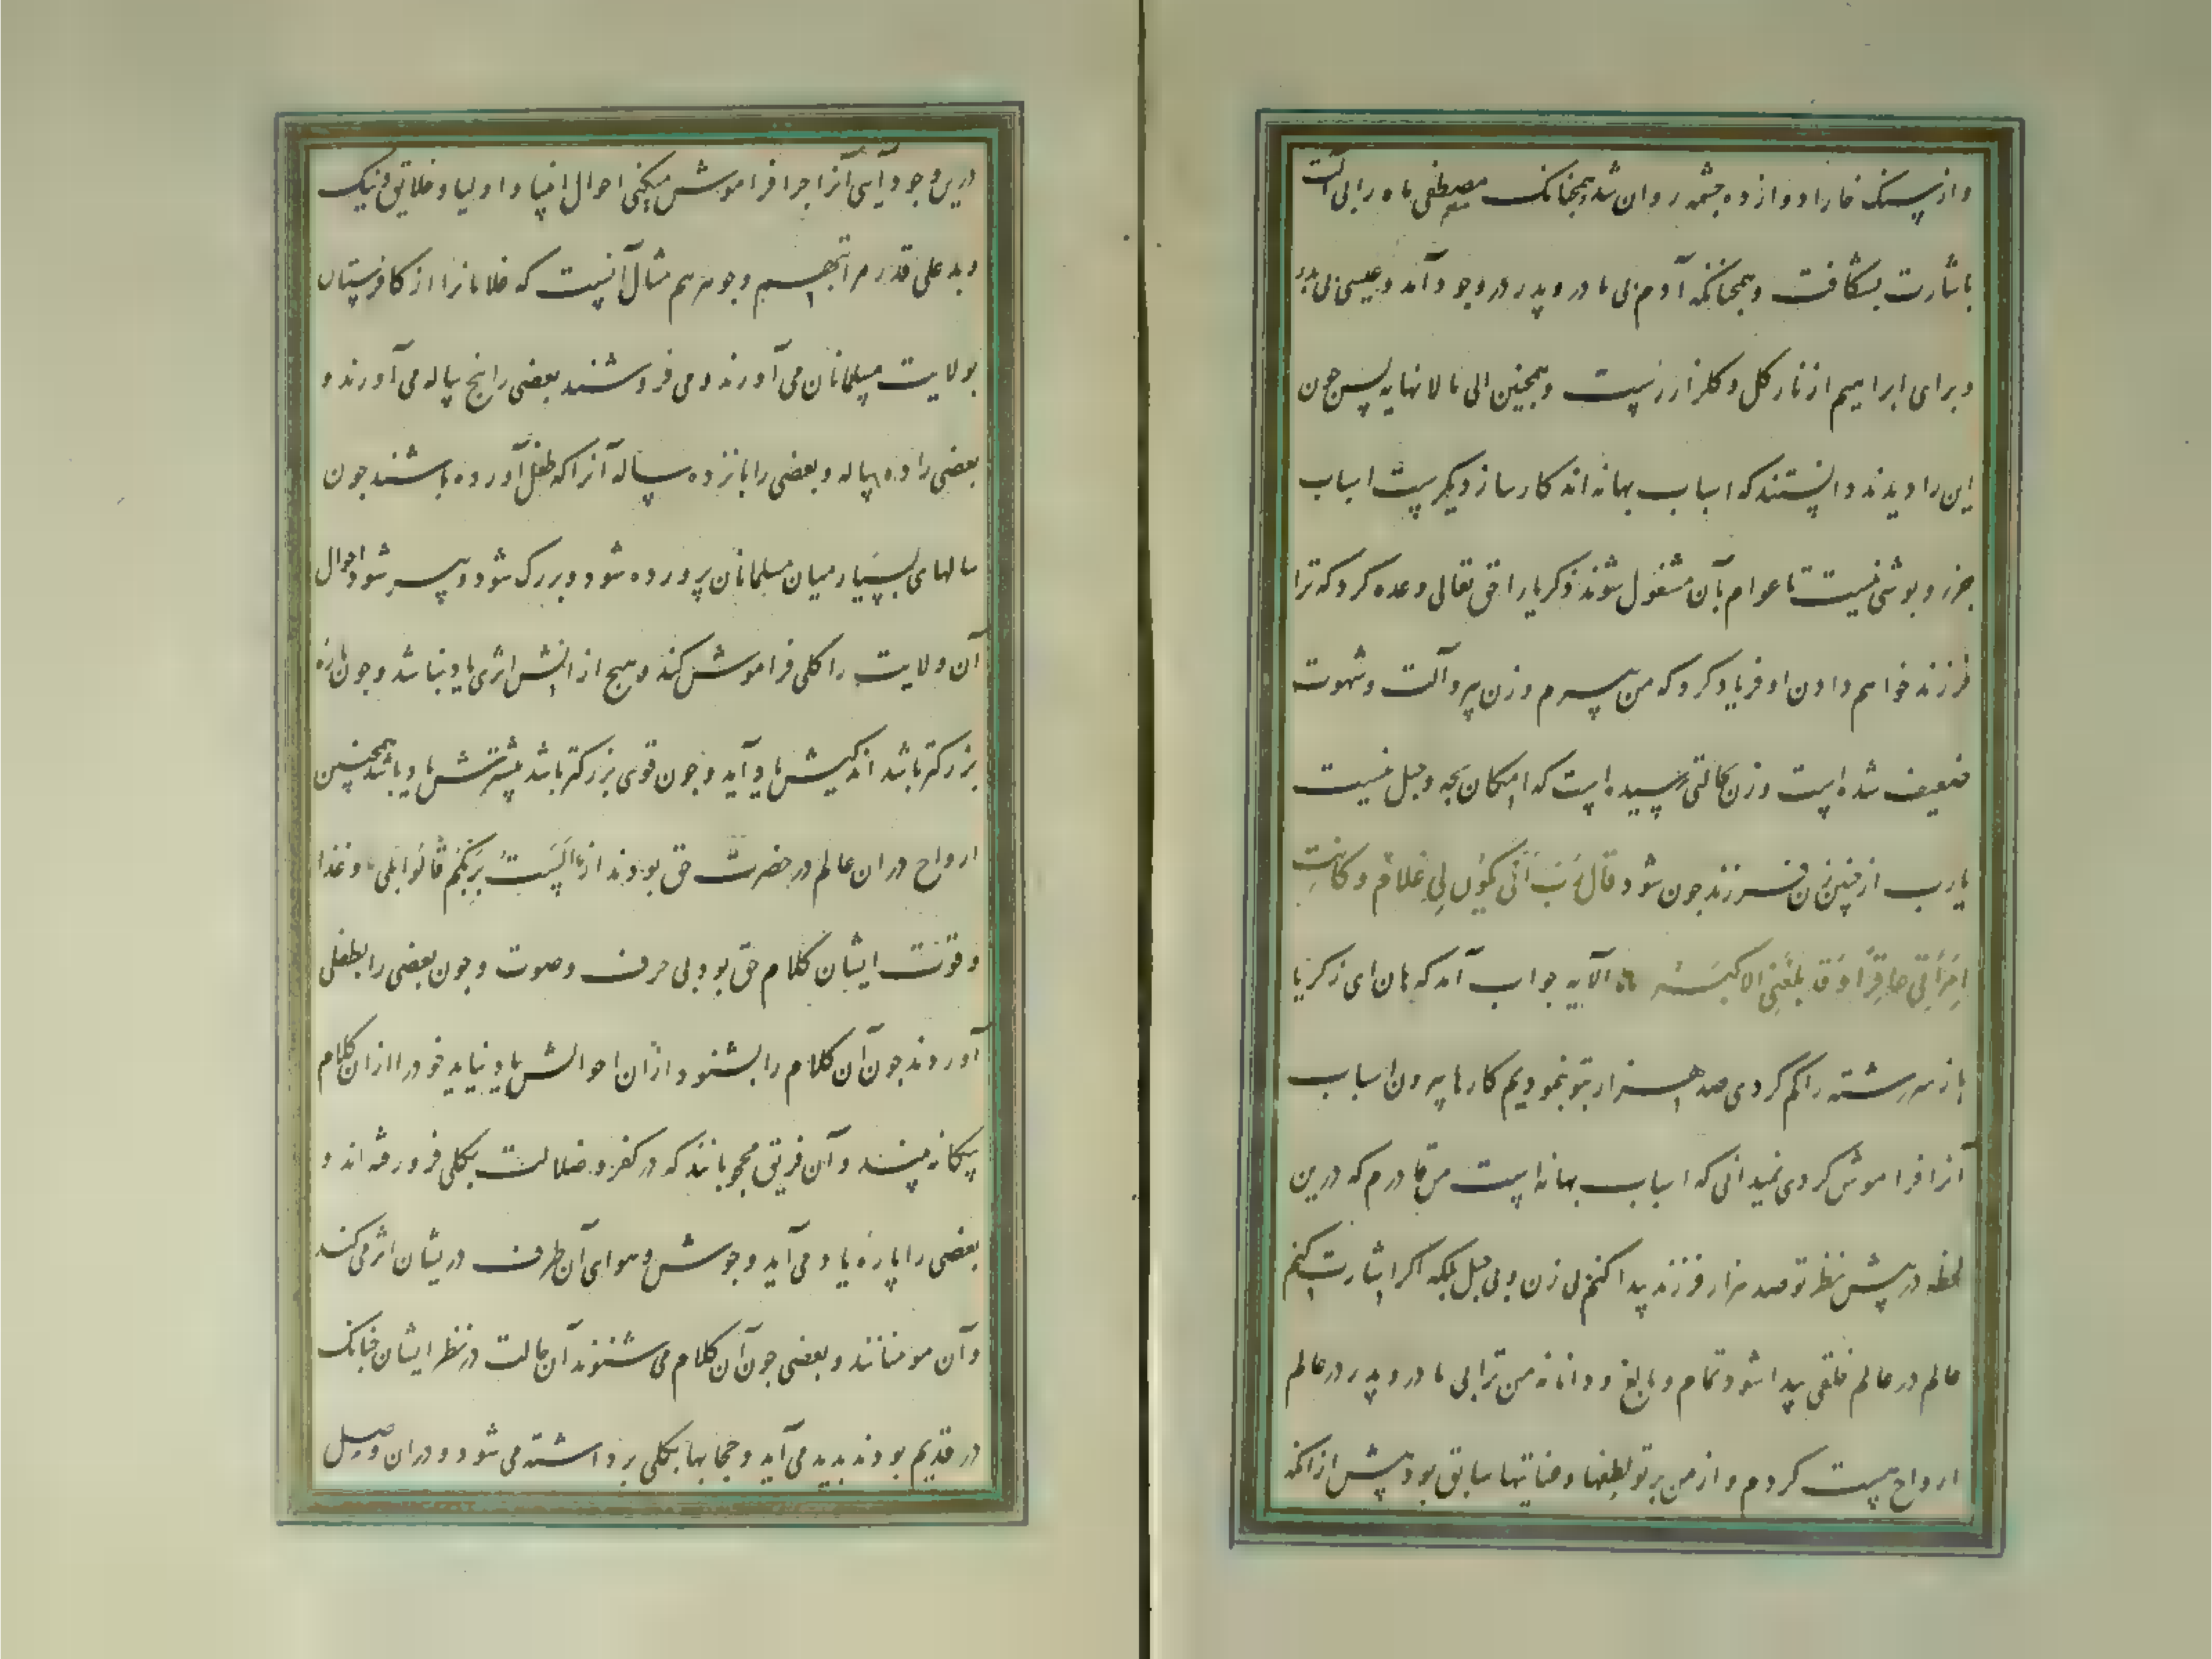 و از سنک خارا دوازده جشمه روان شد و همجنانک مصطفی ماه را بی آلت
باشارت بشکافت و همجنانکه آدم بی مادر و پدر در وجود آمد و عیسی بی پدر
و برای ابراهیم از نار کل و کلزار رست و همجنین الی مالانهایه پس جون
این را دیدند دانستند که اسباب بهانه اند کارساز دیکرست اسباب
جز روبوشی نیست تا عوام بآن مشغول شوند زکریا را حق تعالی وعده کرد که ترا
فرزند خواهم دادن او فریاد کرد که من پیرم و زن پیر و آلت و شهوت
ضعیف شده است و زن بحالتی رسیده است که امکان بجه و حبل نیست
یارب از جنین زن فرزند جون شود قَالَ رَبِّ اَنّی یَکُونُ لِی غُلَامٌ وَ کَانَتِ
اِمْرَأَتِی عَاقِرًا وَ قَدْ بَلَغَنِیَ الکِبَرُ الآیه جواب آمد که هان ای زکریا
باز سررشته را کم کردی صد هزار بتو بنمودیم کارها بیرون اسباب
آنرا فراموش کردی نمیدانی که اسباب بهانه است من قادرم که درین
لحظه در پیش نظر تو صد هزار فرزند پیدا کنم بی زن و بی حبل بلکه اکر اشارت کنم
عالم در عالم خلقی پیدا شود تمام و بالغ و دانا نه من ترا بی مادر و پدر در عالم
ارواح هست کردم و از من بر تو لطفها و عنایتها سابق بود پیش از آنکه
درین وجود آیی آنرا جرا فراموش میکنی احوال انبیا و اولیا و خلایق و نیک
و بد علی قدر مراتبهم و جوهرهم مثال آنست که غلامانرا از کافرستان
بولایت مسلمانان می آورند و می فروشند بعضی را پنج ساله می آورند و
بعضی را ده ساله و بعضی را پانزده ساله آنرا که طفل آورده باشند جون
سالهای بسیار میان مسلمانان پرورده شود و بزرک شود و پیر شود احوال
آن ولایت را کلی فراموش کند و هیج از آنش اثری یاد نباشد و جون پاره
بزرکتر باشد اندکیش یاد آید و جون قوی بزرکتر باشد بیشترش یاد باشد همجنین
ارواح در ان عالم در حضرت حق بودند از اَلَسْتُ بِرَبِّکُمْ قَالُوا بَلَی و غذا
و قوت ایشان کلام حق بود بی حرف و صوت و جون بعضی را بطفلی
آوردند جون آن کلام را بشنود از آن احوالش یاد نیاید خود را از ان کلام
بیکانه بیند و آن فریق محجوبانند که در کفر و ضلالت بکلی فرورفته اند و
بعضی را پاره یاد می آید و جوش و هوای آن طرف دریشان اثر می کند
و آن مومنانند و بعضی جون آن کلام می شنوند آن حالت در نظر ایشان جنانک
در قدیم بودند بدید می آید و حجابها بکلی برداشته می شود و در ان وصل